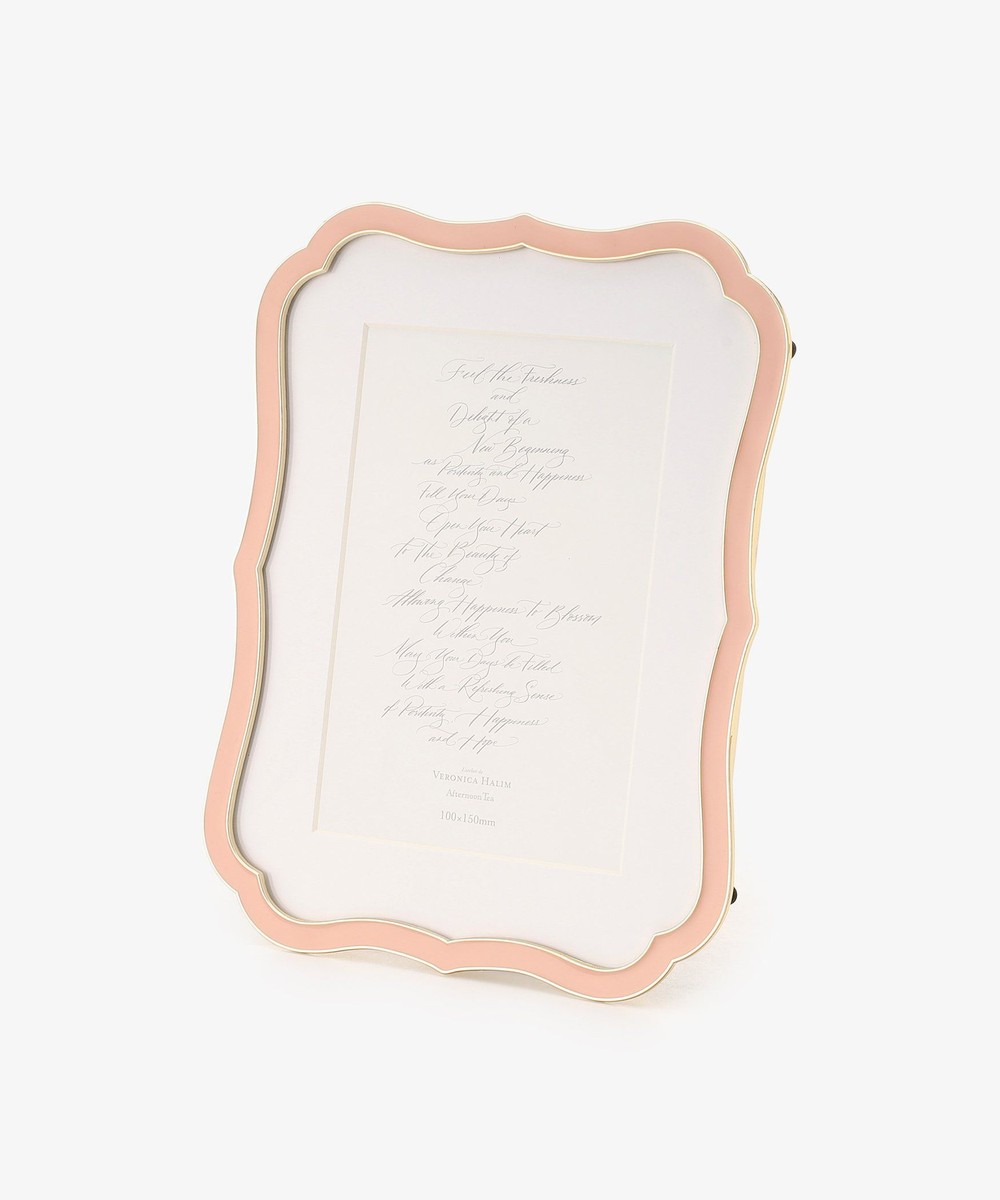 Feel the Freshness
and
Delight of a
New Beginning
as Positivity and Happiness
Fill Your Days
Open Your Heart
to the Beauty of
Change
Allowing Happiness to Blossom
Within You
May Your Days be Filled
With a Refreshing Sense
of Positivity Happiness
and Hope
VERONICA HALIM
Afternoon Tea
100×150mm